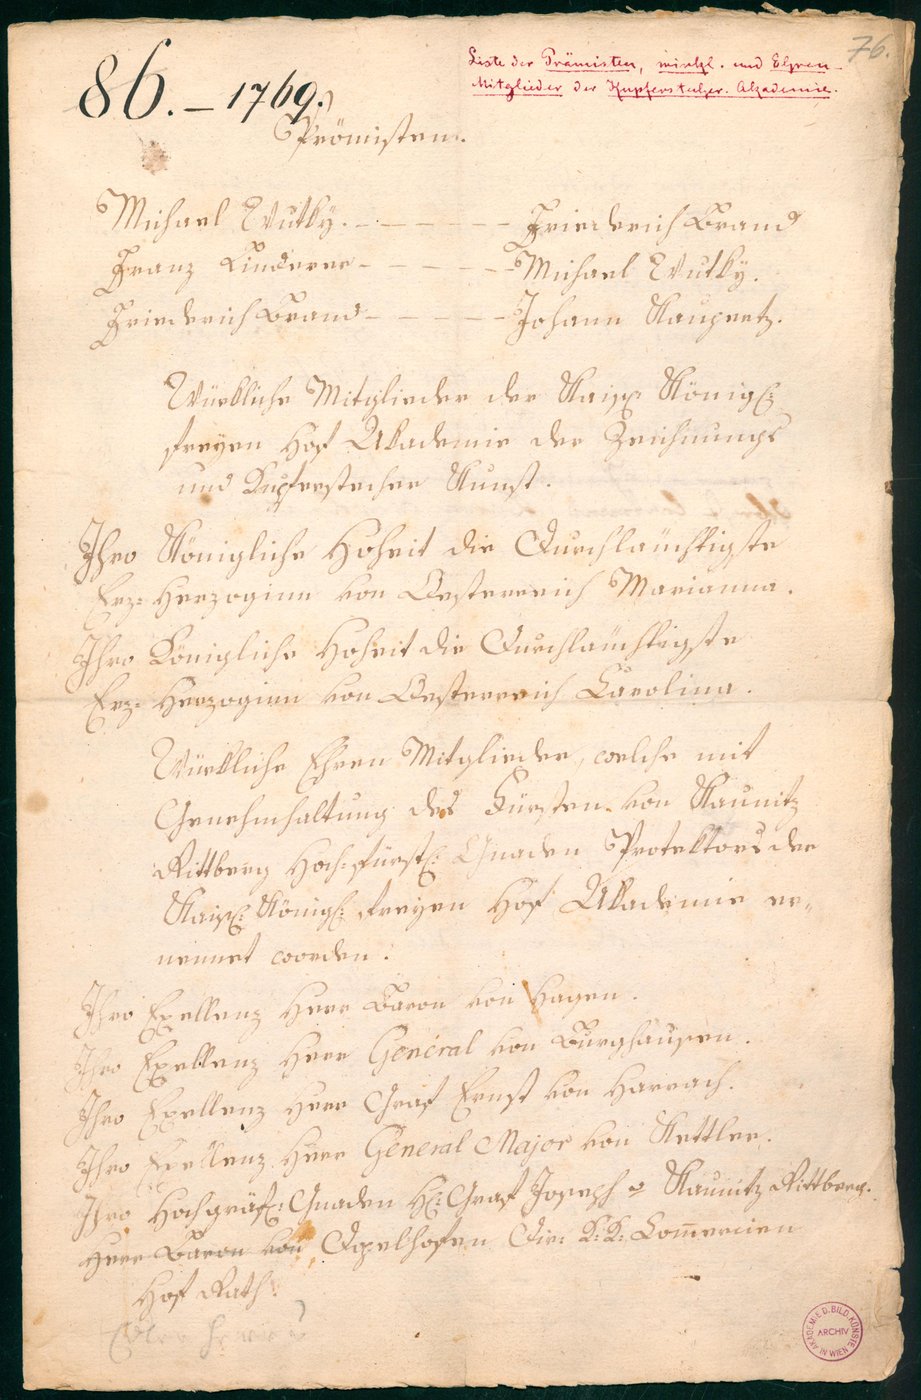 76.
Liste der Prämisten, wirkl. und Ehren-
Mitglieder der Kupferstecher. Akademie.
86. – 1769.
Prömisten.
Michael Wutky. – – – – – Friederich Brand
Franz Linderer – – – – – Michael Wutky.
Friederich Brand – – – – – Johann Kauperz.
Würkliche Mitglieder der Kaiß: Königl:
freyen Hof Akademie der Zeichnungs
und Kupferstecher Kunst.
Ihro Königliche Hoheit die Durchläuchtigste
Erz-Herzoginn von Oesterreich Marianna.
Ihro Königliche Hoheit die Durchläuchtigste
Erz-Herzoginn von Oesterreich Carolina.
Würkliche Ehren Mitglieder, welche mit
Genehmhaltung des Fürsten von Kaunitz
Rittberg Hoch-fürstl: Gnaden Protektors der
Kaißl: Königl: freyen Hof Akademie er-
nennet worden.
Ihro Exellenz Herr Baron von Hagen.
Ihro Exellenz Herr General von Burghausen.
Ihro Exellenz Herr Graf Ernst von Harrach.
Ihro Exellenz Herr General Major von Kettler.
Ihro Hochgräfl: Gnaden H: Graf Joseph v Kaunitz Rittberg.
Herr Baron von Dir: K: K: Commercien
Hof Rath.
AKADEMIE D. BILD. KÜNSTE
ARCHIV
IN WIEN